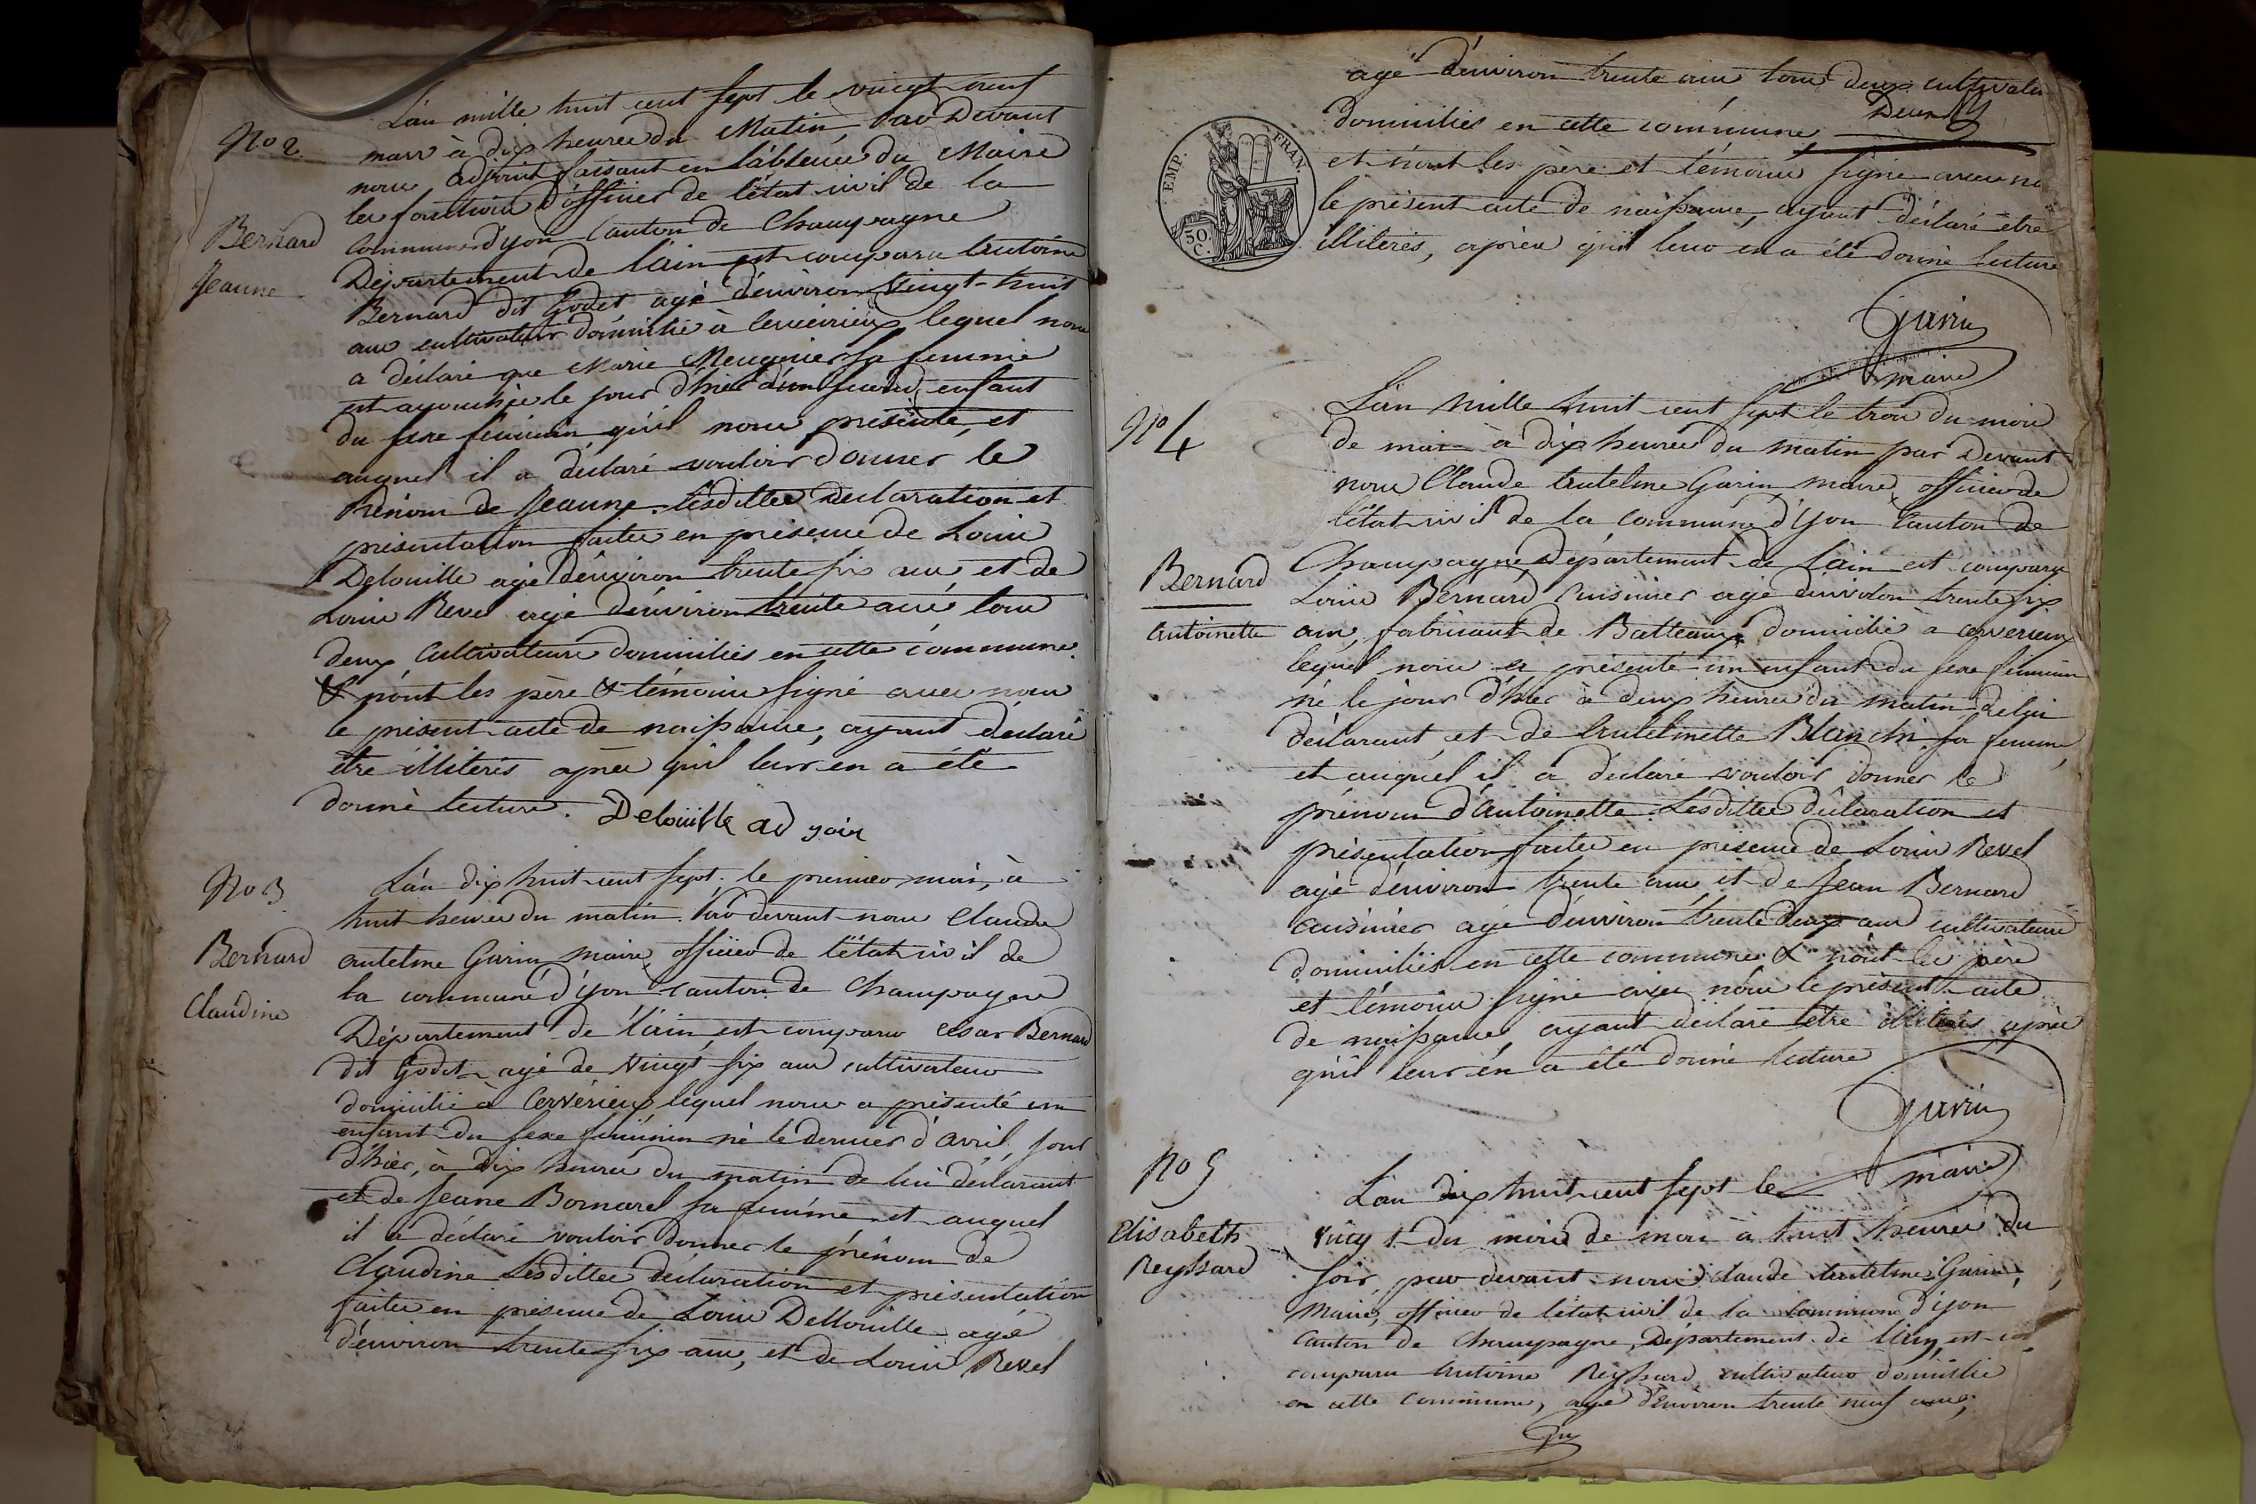 No 2
L'an mille huit cent sept le vingt neuf
mars à dix heures du Matin, Par Devant
nous adjoint faisant en l'absence du Maire
les fonctions d'officier de l'état civil de la
Commune d'yon Canton de Champagne
Bernard
Jeanne
Département de l'ain est comparu antoine
Bernard dit Godet agé d'environ vingt-huit
ans cultivateur domicilié à Cerveirieux lequel nous
a déclaré que Marie Meugnier sa femme
est acouchée le jour d'hier d'un enfant
du sexe féminin qu'il nous présente, et
auquel il a déclaré vouloir donner le
Prénom de Jeanne. Lesdittes Declaration et
présentation faites en présence de Louis
Delouille agé d'environ trente six ans et de
Louis Revel agé d'environ trente ans, tous
deux Cultivateurs domiciliés en cette commune.
& n'ont les père & témoins signé avec nous
le présent acte de naissance, ayant déclaré
être illiterés après qu'il leur en a été
donné lecture. Delouille ad join
No 3
Bernard
Claudine
L'an dix huit cent sept. le premier mai, à
huit heures du matin. Par devant nous Claude
antelme Garin maire, officier de l'état civil de
la commune d'yon canton de Champagne
Département de l'ain est comparu cesar Bernard
dit Godet agé de vingt six ans cultivateur
domicilié à Cervérieux lequel nous a présenté un
enfant du sexe féminin né le dernier d'avril, jour
d'hier, à dix heures du matin de lui déclarant
et de Jeane Bornarel sa femme et auquel
il a déclaré vouloir donner le prénom de
Claudine Lesdittes déclaration et présentation
faites en présence de Louis Dellouille agé
d'environ trente six ans, et de Louis Revel
agé d'environ trente ans tous deux cultivate
domiciliés en cette commune
et n'ont les père et témoins signé avec no
le présent acte de naissance, ayant déclaré être
illiterés, après qu'il leur en a été donné lecture
EMP. FRAN.
50
C.
Garin
maire
No 4
Bernard
antoinette
L'an mille huit cent sept le trois du mois
de mai à dix heures du matin par Devant
nous Claude antelme Garin maire, officier de
l'état civil de la commune d'yon Canton de
Champagne Département de l'ain est comparu
Louis Bernard Cuisinier agé d'environ trente six
ans, fabricant de Batteaux domicilié à cerverieux
lequel nous a présenté un enfant du sexe féminin
né le jour d'hier à deux heures du matin de lui
déclarant et de antelmette Blanchin sa femme,
et auquel il a déclaré vouloir donner le
prénom d'antoinette. Lesdittes déclaration et
présentation faites en présence de Louis Revel
agé d'environ trente ans et de Jean Bernard
cuisinier agé d'environ trente deux ans cultivateurs
domiciliés en cette commune & n'ont les père
et témoins signé avec nous le présent acte
de naissance ayant déclaré être illiterés, après
qu'il leur en a été donné lecture
Garin
maire
No 5
Elisabeth
Reyssard
L'an dix huit cent sept le
vingt du mois de mai à huit heures du
soir, par devant nous claude antelme Garin,
Maire, officier de l'état civil de la commune d'yon
canton de Champagne, Département de l'ain, est
comparu antoine Reyssard cultivateur domicilié
en cette commune, agé d'environ trente neuf ans,